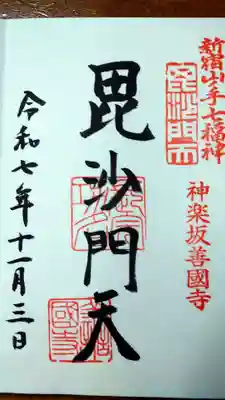 新宿山ノ手七福神
毘沙門天
神楽坂善國寺
毘沙門天
令和七年十一月三日